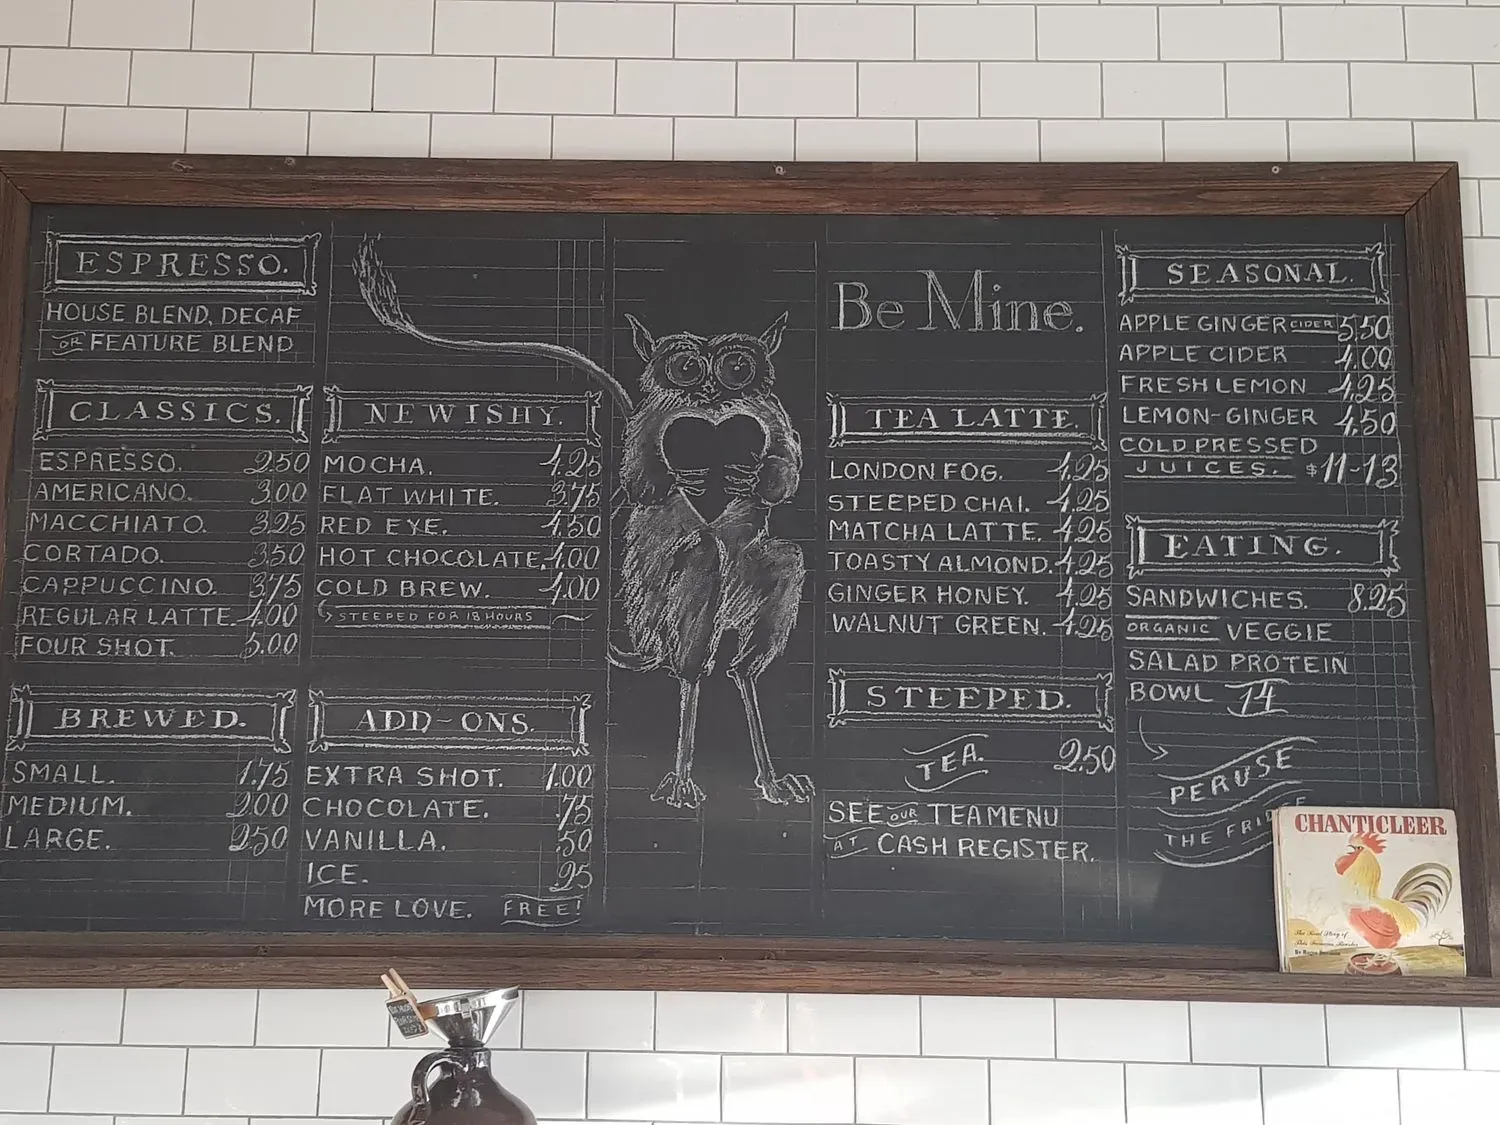 ESPRESSO.
HOUSE BLEND, DECAF
OR FEATURE BLEND
CLASSICS.
ESPRESSO. 2.50
AMERICANO. 3.00
MACCHIATO. 3.25
CORTADO. 3.50
CAPPUCCINO. 3.75
REGULAR LATTE. 4.00
FOUR SHOT. 5.00
BREWED.
SMALL. 1.75
MEDIUM. 2.00
LARGE. 2.50
NEWISHY.
MOCHA. 4.25
FLAT WHITE. 3.75
RED EYE. 4.50
HOT CHOCOLATE. 4.00
COLD BREW. 4.00
STEEPED FOR 18 HOURS
ADD-ONS.
EXTRA SHOT. 1.00
CHOCOLATE. .75
VANILLA. .50
ICE. .25
MORE LOVE. FREE!
Be Mine.
TEA LATTE.
LONDON FOG. 4.25
STEEPED CHAI. 4.25
MATCHA LATTE. 4.25
TOASTY ALMOND. 4.25
GINGER HONEY. 4.25
WALNUT GREEN. 4.25
STEEPED.
TEA. 2.50
SEE OUR TEA MENU
AT CASH REGISTER.
SEASONAL.
APPLE GINGER CIDER 5.50
APPLE CIDER 4.00
FRESH LEMON 4.25
LEMON-GINGER 4.50
COLD PRESSED
JUICES. $11-13
EATING.
SANDWICHES. 8.25
ORGANIC VEGGIE
SALAD PROTEIN
BOWL 14
PERUSE
THE
CHANTICLEER
The Real Story of
This Famous Rooster